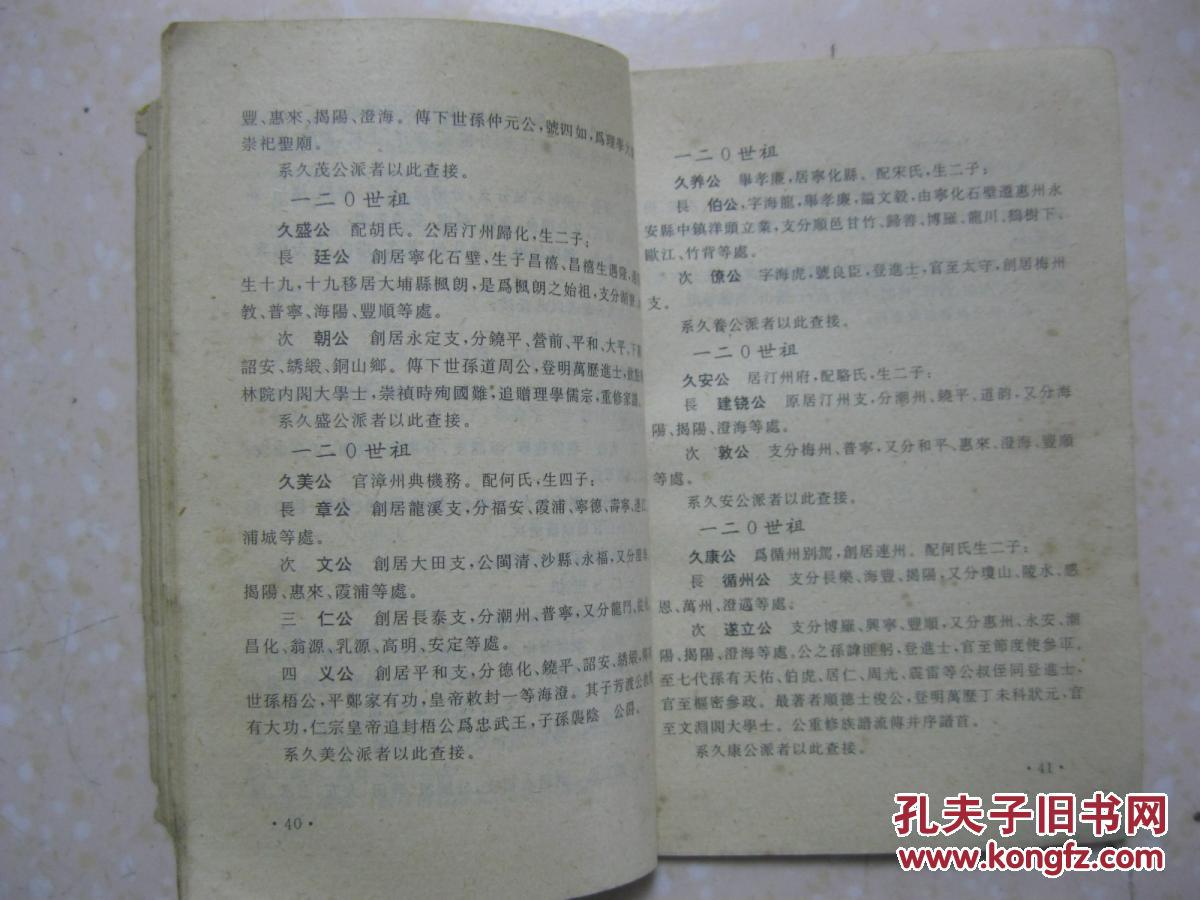 豐、惠來、揭陽、澄海。傳下世孫仲元公，號四如，爲理學大
崇祀聖廟。
系久茂公派者以此查接。
一二0世祖
久盛公 配胡氏。公居汀州歸化，生二子；
長 廷公 創居寧化石壁，生子昌禧、昌禧生遇隆，
生十九，十九移居大埔縣楓朗，是爲楓朗之始祖，支分
教、普寧、海陽、豐順等處。
次 朝公 創居永定支，分鐃平、營前、平和、大平、下
詔安、綉緞、銅山鄉。傳下世孫道周公，登明萬歷進士，
林院内閣大學士，崇禎時殉國難，追贈理學儒宗，重修家譜。
系久盛公派者以此查接。
一二0世祖
久美公 官漳州典機務。配何氏，生四子：
長 章公 創居龍溪支，分福安、霞浦、寧德、壽寧、連江
浦城等處。
次 文公 創居大田支，公閩清、沙縣、永福，又分
揭陽、惠來、霞浦等處。
三 仁公 創居長泰支，分潮州、普寧，又分龍門、
昌化、翁源、乳源、高明、安定等處。
四 义公 創居平和支，分德化、鐃平、詔安、綉緞，
世孫梧公，平鄭家有功，皇帝敕封一等海澄。其子芳渡公
有大功，仁宗皇帝追封梧公爲忠武王，子孫襲陰 公爵。
系久美公派者以此查接。
·40·
一二0世祖
久养公 舉孝廉，居寧化縣。配宋氏，生二子；
長 伯公，字海龍，舉孝廉，謚文毅，由寧化石壁遷惠州永
安縣中鎮洋頭立業，支分順邑甘竹、歸善、博羅、龍川、鶴樹下、
歐江、竹背等處。
次 僚公 字海虎，號良臣，登進士，官至太守，創居梅州
支。
系久養公派者以此查接。
一二0世祖
久安公 居汀州府，配駱氏，生二子；
長 建铙公 原居汀州支，分潮州、鐃平、道韵，又分海
陽、揭陽、澄海等處。
次 敦公 支分梅州、普寧，又分和平、惠來、澄海、豐順
等處。
系久安公派者以此查接。
一二0世祖
久康公 爲循州别駕，創居連州。配何氏生二子；
長 循州公 支分長樂、海豐、揭陽，又分瓊山、陵水、感
恩、萬州、澄邁等處。
次 遂立公 支分博羅、興寧、豐順，又分惠州、永安、潮
陽、揭陽、澄海等處。公之孫諱匪躬，登進士，官至節度使參軍。
至七代孫有天佑、伯虎、居仁、周光、震雷等公叔侄同登進士，
官至樞密參政。最著者順德士俊公，登明萬歷丁未科狀元，官
至文淵閣大學士。公重修族譜流傳并序譜首。
系久康公派者以此查接。
·41·
孔夫子旧书网
www.kongfz.com